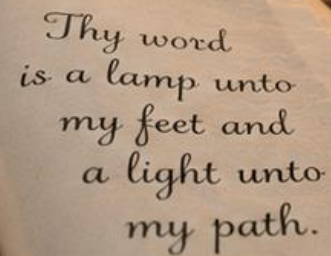 Thy word
is a lamp unto
my feet and
a light unto
my path.